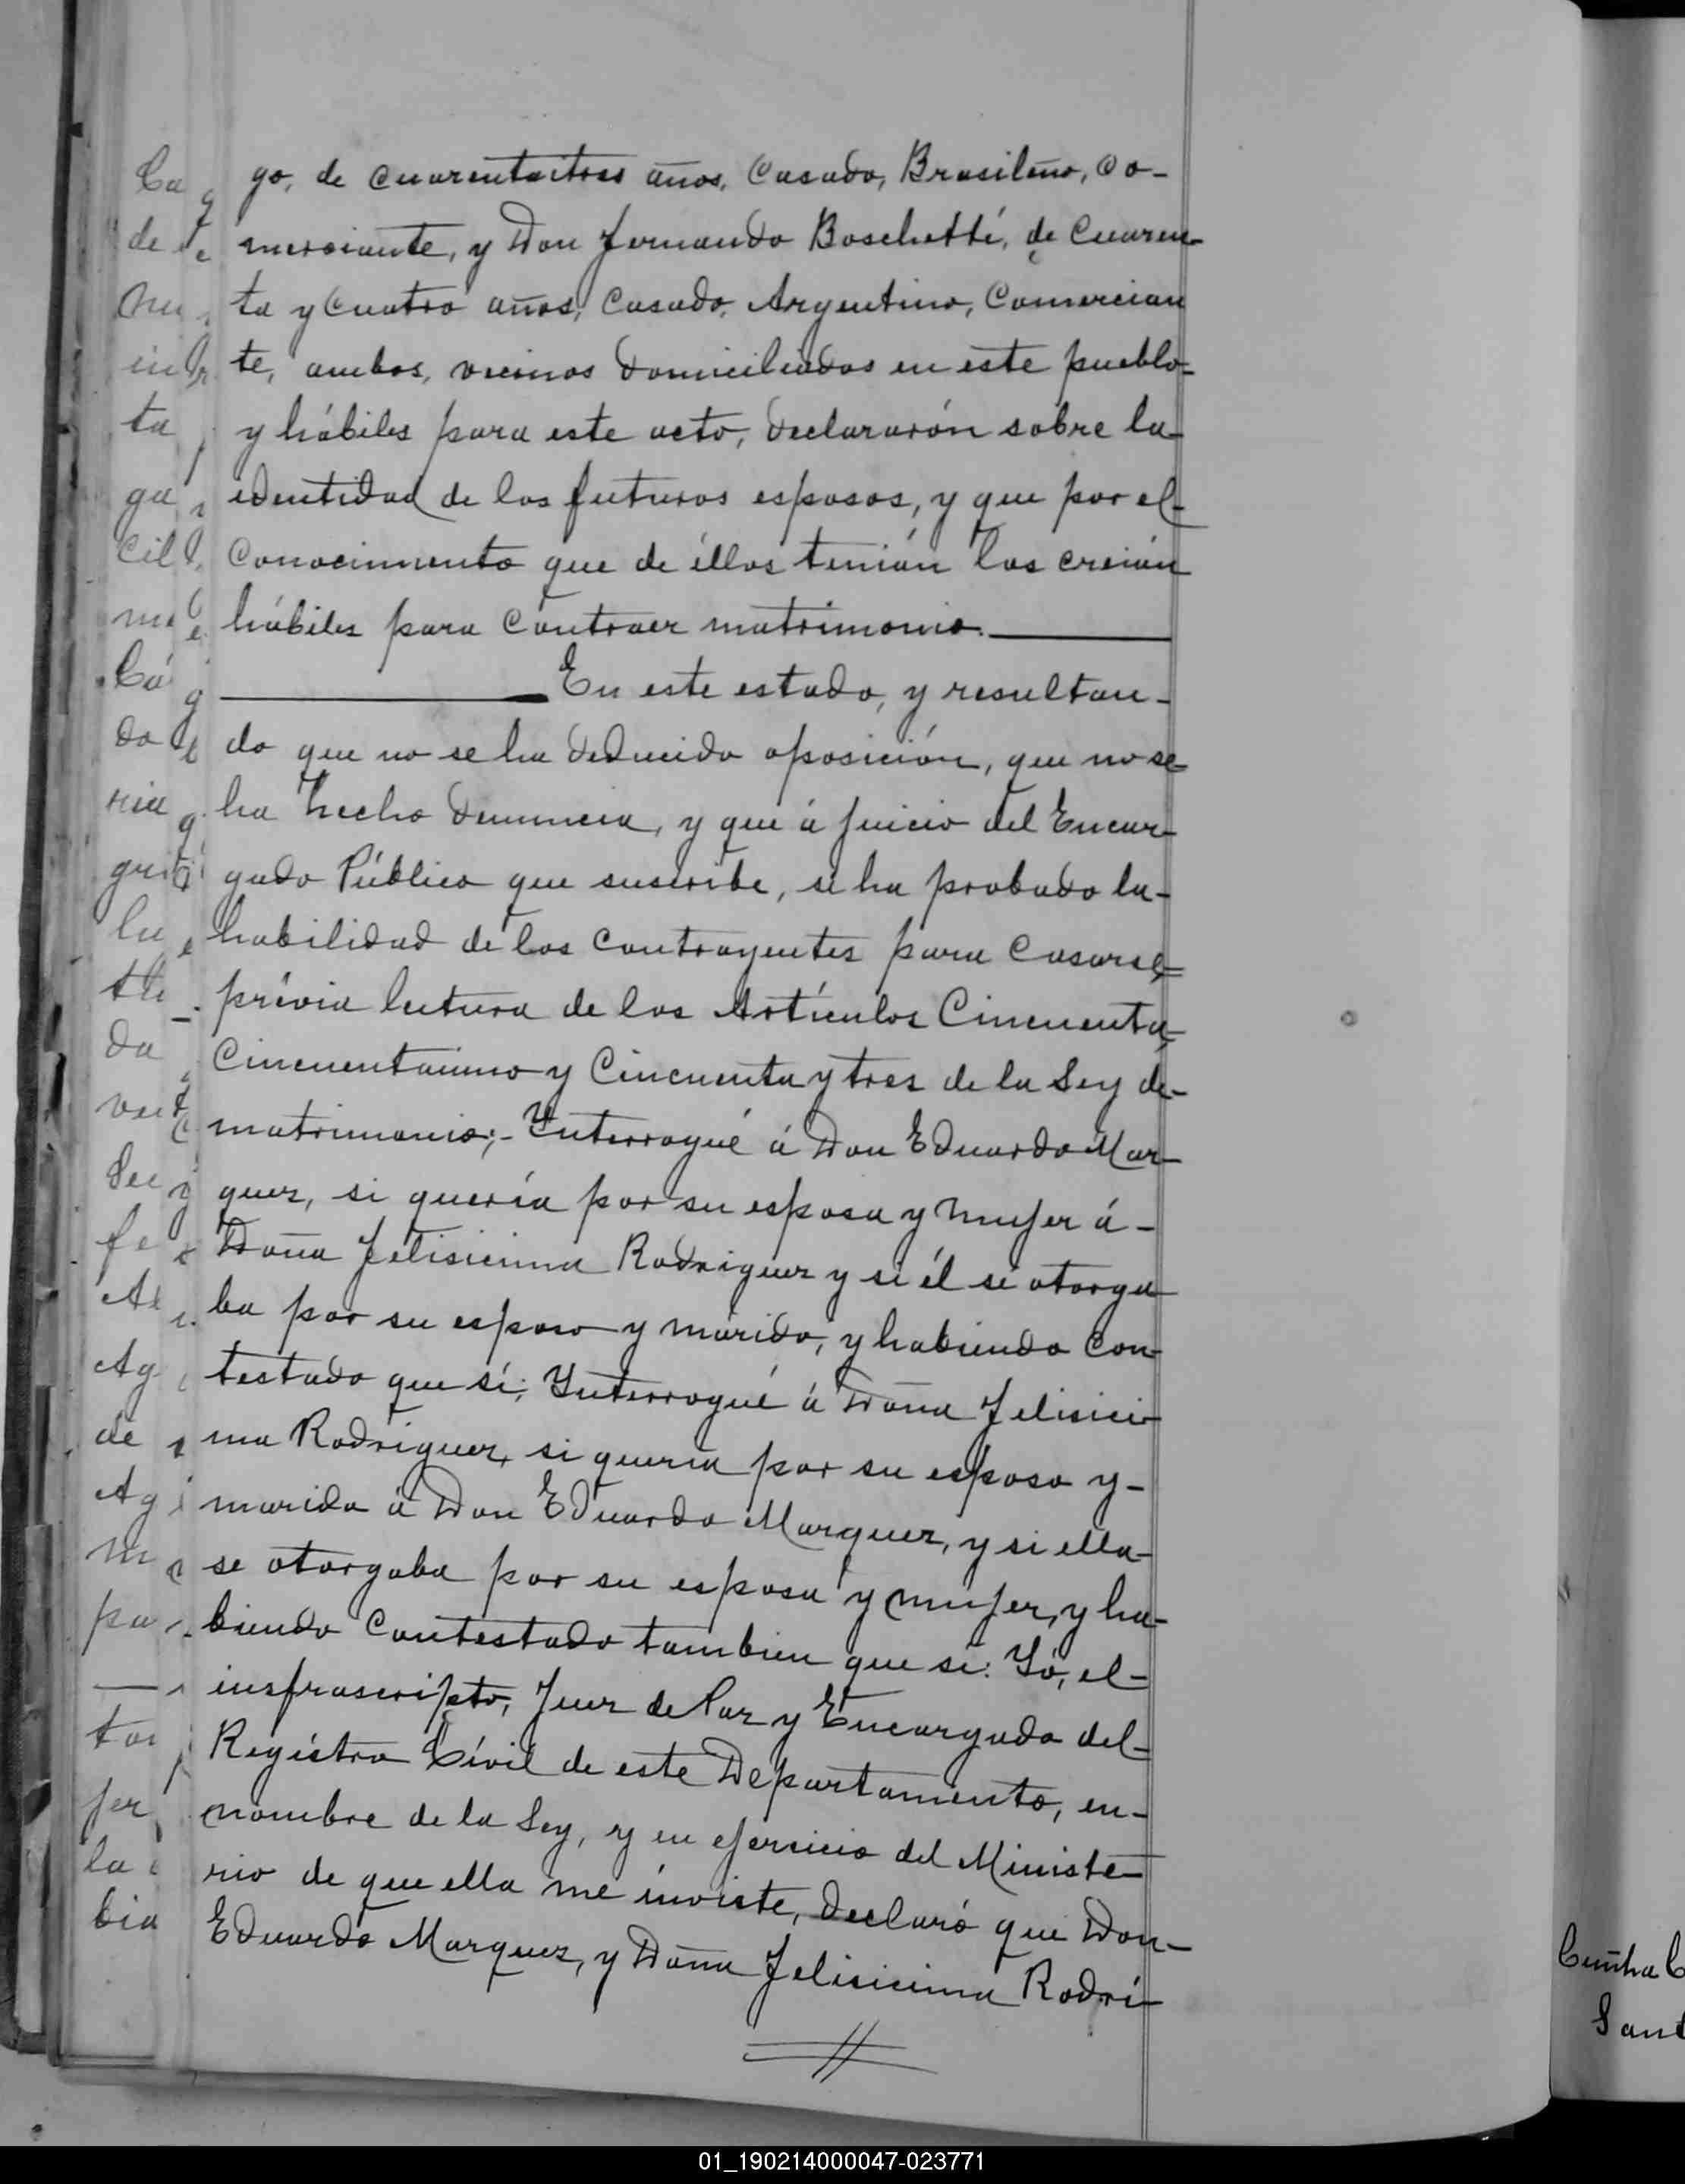 go, de cuarentaitres años, Casado, Brasileño, Co-
merciante, y Don Fernando Boschetti, de Cuaren-
ta y Cuatro años, Casado, Argentino, Comercian
te, ambos, vecinos domiciliados en este pueblo-
y hábiles para este acto, declararón sobre la-
identidad de los futuros esposos, y que por el-
Conocimiento que de éllos tenián los creián
hábiles para Contraer matrimonio.
En este estado, y resultan-
do que no se ha deducido oposición, que no se
ha hecho denuncia, y que á juicio del Encar-
gado Público que suscribe, se ha probado la-
habilidad de los Contrayentes para Casarse,
prévia lectura de los Artículos Cincuenta,
Cincuentaiuno y Cincuenta y tres de la Ley de-
matrimonio;- Interrogué á Don Eduardo Mar-
quez, si quería por su esposa y mujer á-
Doña Felisicima Rodriguez y si él se otorga
ba por su esposo y marido, y habiendo Con-
testado que sí; Interrogué á Doña Felisici-
ma Rodriguez, si quería por su esposo y-
marido á Don Eduardo Marquez, y si ella-
se otorgaba por su esposa y mujer, y ha-
biendo Contestado tambien que sí: Yó, el-
insfrascripto, Juez de Paz y Encargado del-
Registro Cívil de este Departamento, en-
nombre de la Ley, y en ejercicio del Ministe-
rio de que ella me inviste, declaró que Don-
Eduardo Marquez, y Doña Felisicima Rodri-
Ca
de
in
ta
ga
Cil
Cá
do
ria
la
da
fe
Ag
de
Ag
m
pa
jer
la
bia
Cunha C
Sant
01_190214000047-023771